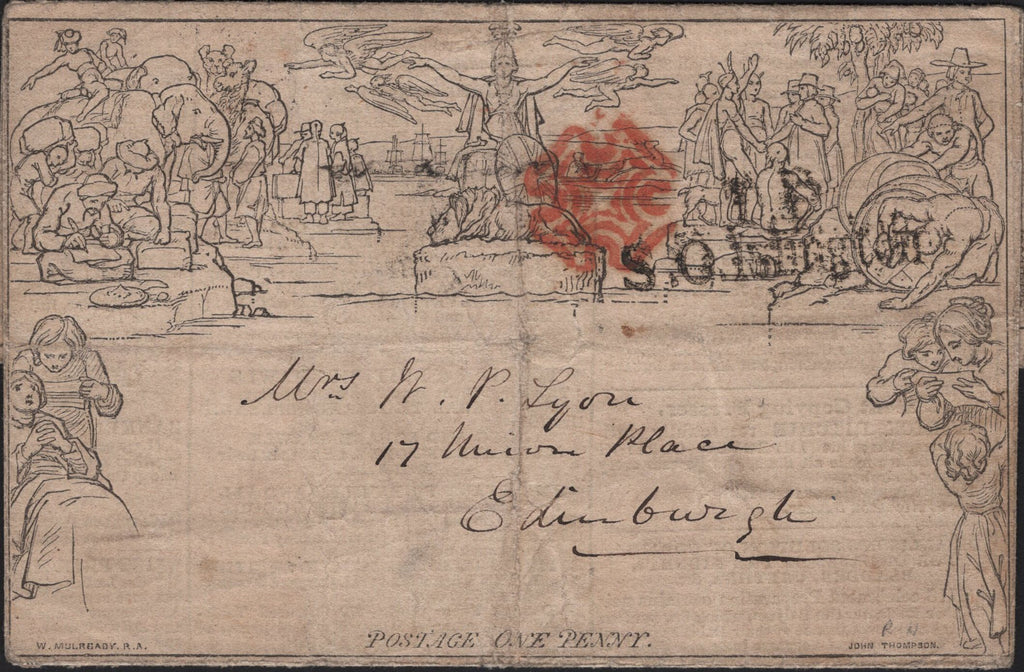 T.P
S.O. Islington
Mrs W. P. Lyon
17 Union Place
Edinburgh
POSTAGE ONE PENNY.
W. MULREADY. R.A.
JOHN THOMPSON.